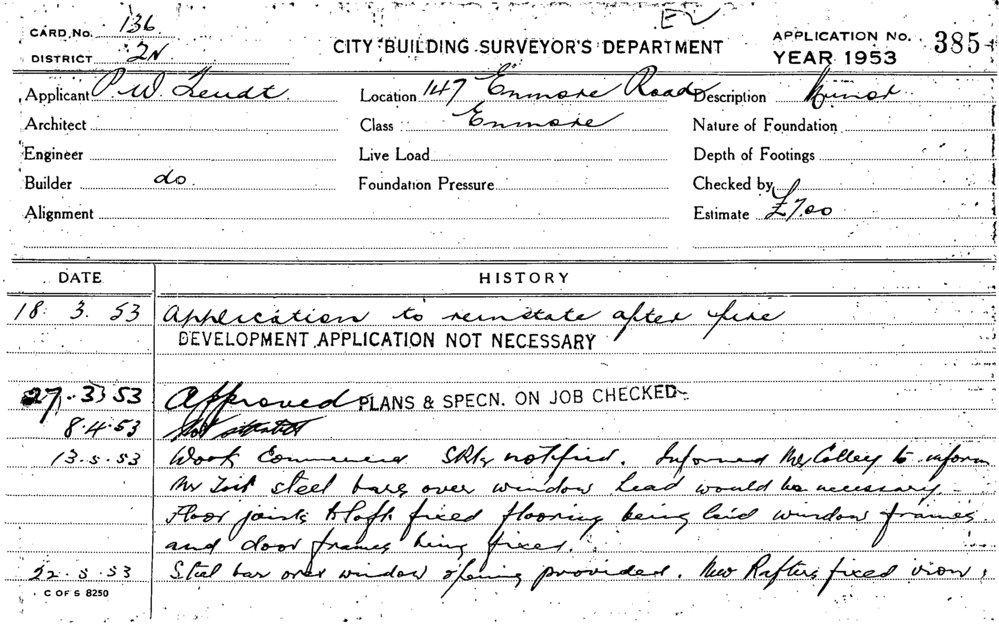 EV
CARD No. 136
DISTRICT 2N
CITY BUILDING SURVEYOR'S DEPARTMENT
APPLICATION No. 385
YEAR 1953
Applicant P. W. Location 147 Enmore Road Description Minor
Architect Class Enmore Nature of Foundation
Engineer Live Load Depth of Footings
Builder do. Foundation Pressure Checked by
Alignment Estimate £700
DATE HISTORY
18. 3. 53 Application to reinstate after fire
DEVELOPMENT APPLICATION NOT NECESSARY
27. 3. 53 Approved PLANS & SPECN. ON JOB CHECKED
8.4.53 Not started
13.5.53 Work Commenced notified. Informed Mr Colley to inform
Mr steel bars over window head would be necessary.
Floor joists to loft fixed flooring being laid window frames
and door frames being fixed.
22.5.53 Steel bar over window opening provided. New Rafters fixed
C OF S 8250